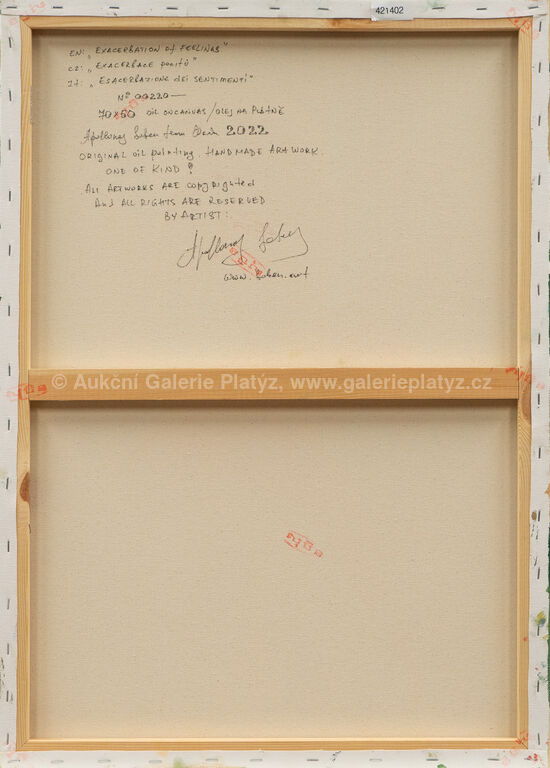 421402
EN: „EXACERBATION OF FEELINGS"
CZ: „EXACERBACE POCITŮ"
IT: „ESACERBAZIONE DEI SENTIMENTI"
Nº 00220—
OIL ON CANVAS/OLEJ NA PLÁTNĚ
2022
ORIGINAL oil painting HANDMADE ARTWORK.
ONE OF KIND!
ALL ARTWORKS ARE copyrighted
And ALL RIGHTS ARE RESERVED
BY ARTIST:
© Aukční Galerie Platýz, www.galerieplatyz.cz